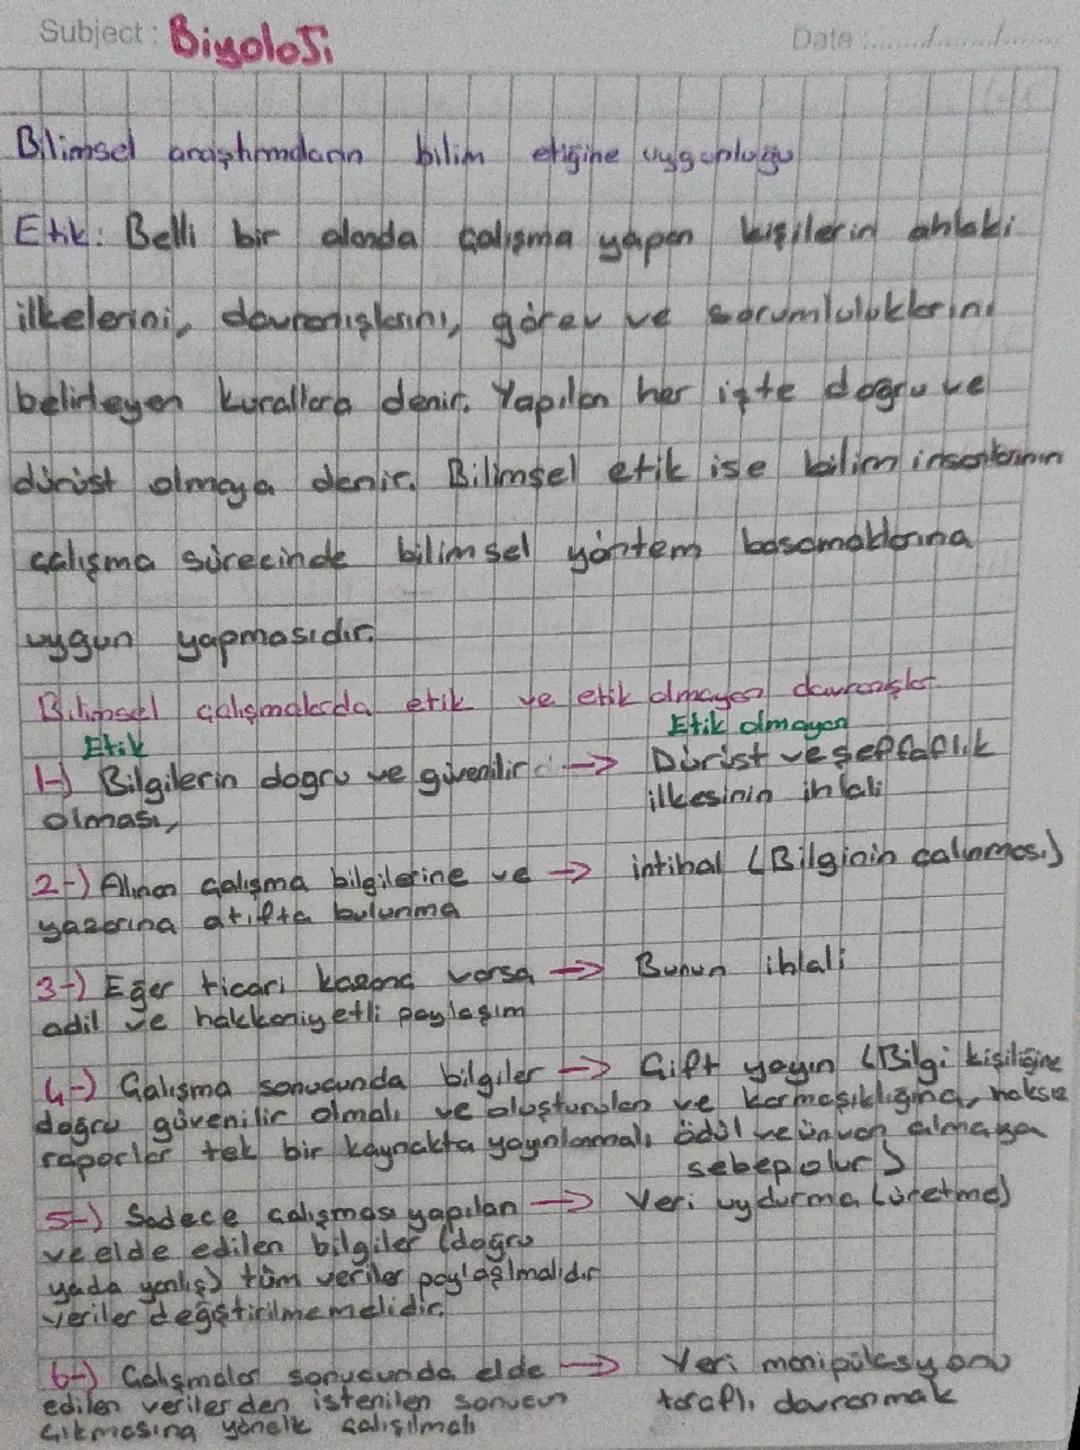 Subject: Biyoloji
Date:....../....../......
Bilimsel araştırmaların bilim etiğine uygunluğu
Etik: Belli bir alanda çalışma yapan kişilerin ahlaki
ilkelerini, davranışlarını, görev ve sorumluluklarını
belirleyen kurallara denir. Yapılan her işte doğru ve
dürüst olmaya denir. Bilimsel etik ise bilim insanlarının
çalışma sürecinde bilimsel yöntem basamaklarına
uygun yapmasıdır.
Bilimsel çalışmalarda etik ve etik olmayan davranışlar
Etik
Etik olmayan
1-) Bilgilerin doğru ve güvenilir → Dürüst ve şeffaflık
olması, ilkesinin ihlali
2-) Alınan çalışma bilgilerine ve → intihal (Bilginin çalınması)
yazarına atıfta bulunma
3-) Eğer ticari kazanç varsa → Bunun ihlali
adil ve hakkaniyetli paylaşım
4-) Çalışma sonucunda bilgiler → Çift yayın (Bilgi kişiliğine
doğru güvenilir olmalı ve oluşturulan ve karmaşıklığına, haksız
raporlar tek bir kaynakta yayınlanmalı ödül ve ünvan almaya
sebep olur)
5-) Sadece çalışması yapılan → Veri uydurma (üretme)
ve elde edilen bilgiler (doğru
yada yanlış) tüm veriler paylaşılmalıdır
veriler değiştirilmemelidir.
6-) Çalışmalar sonucunda elde → Veri manipülasyonu
edilen verilerden istenilen sonucun taraflı davranmak
çıkmasına yönelik çalışılmalı